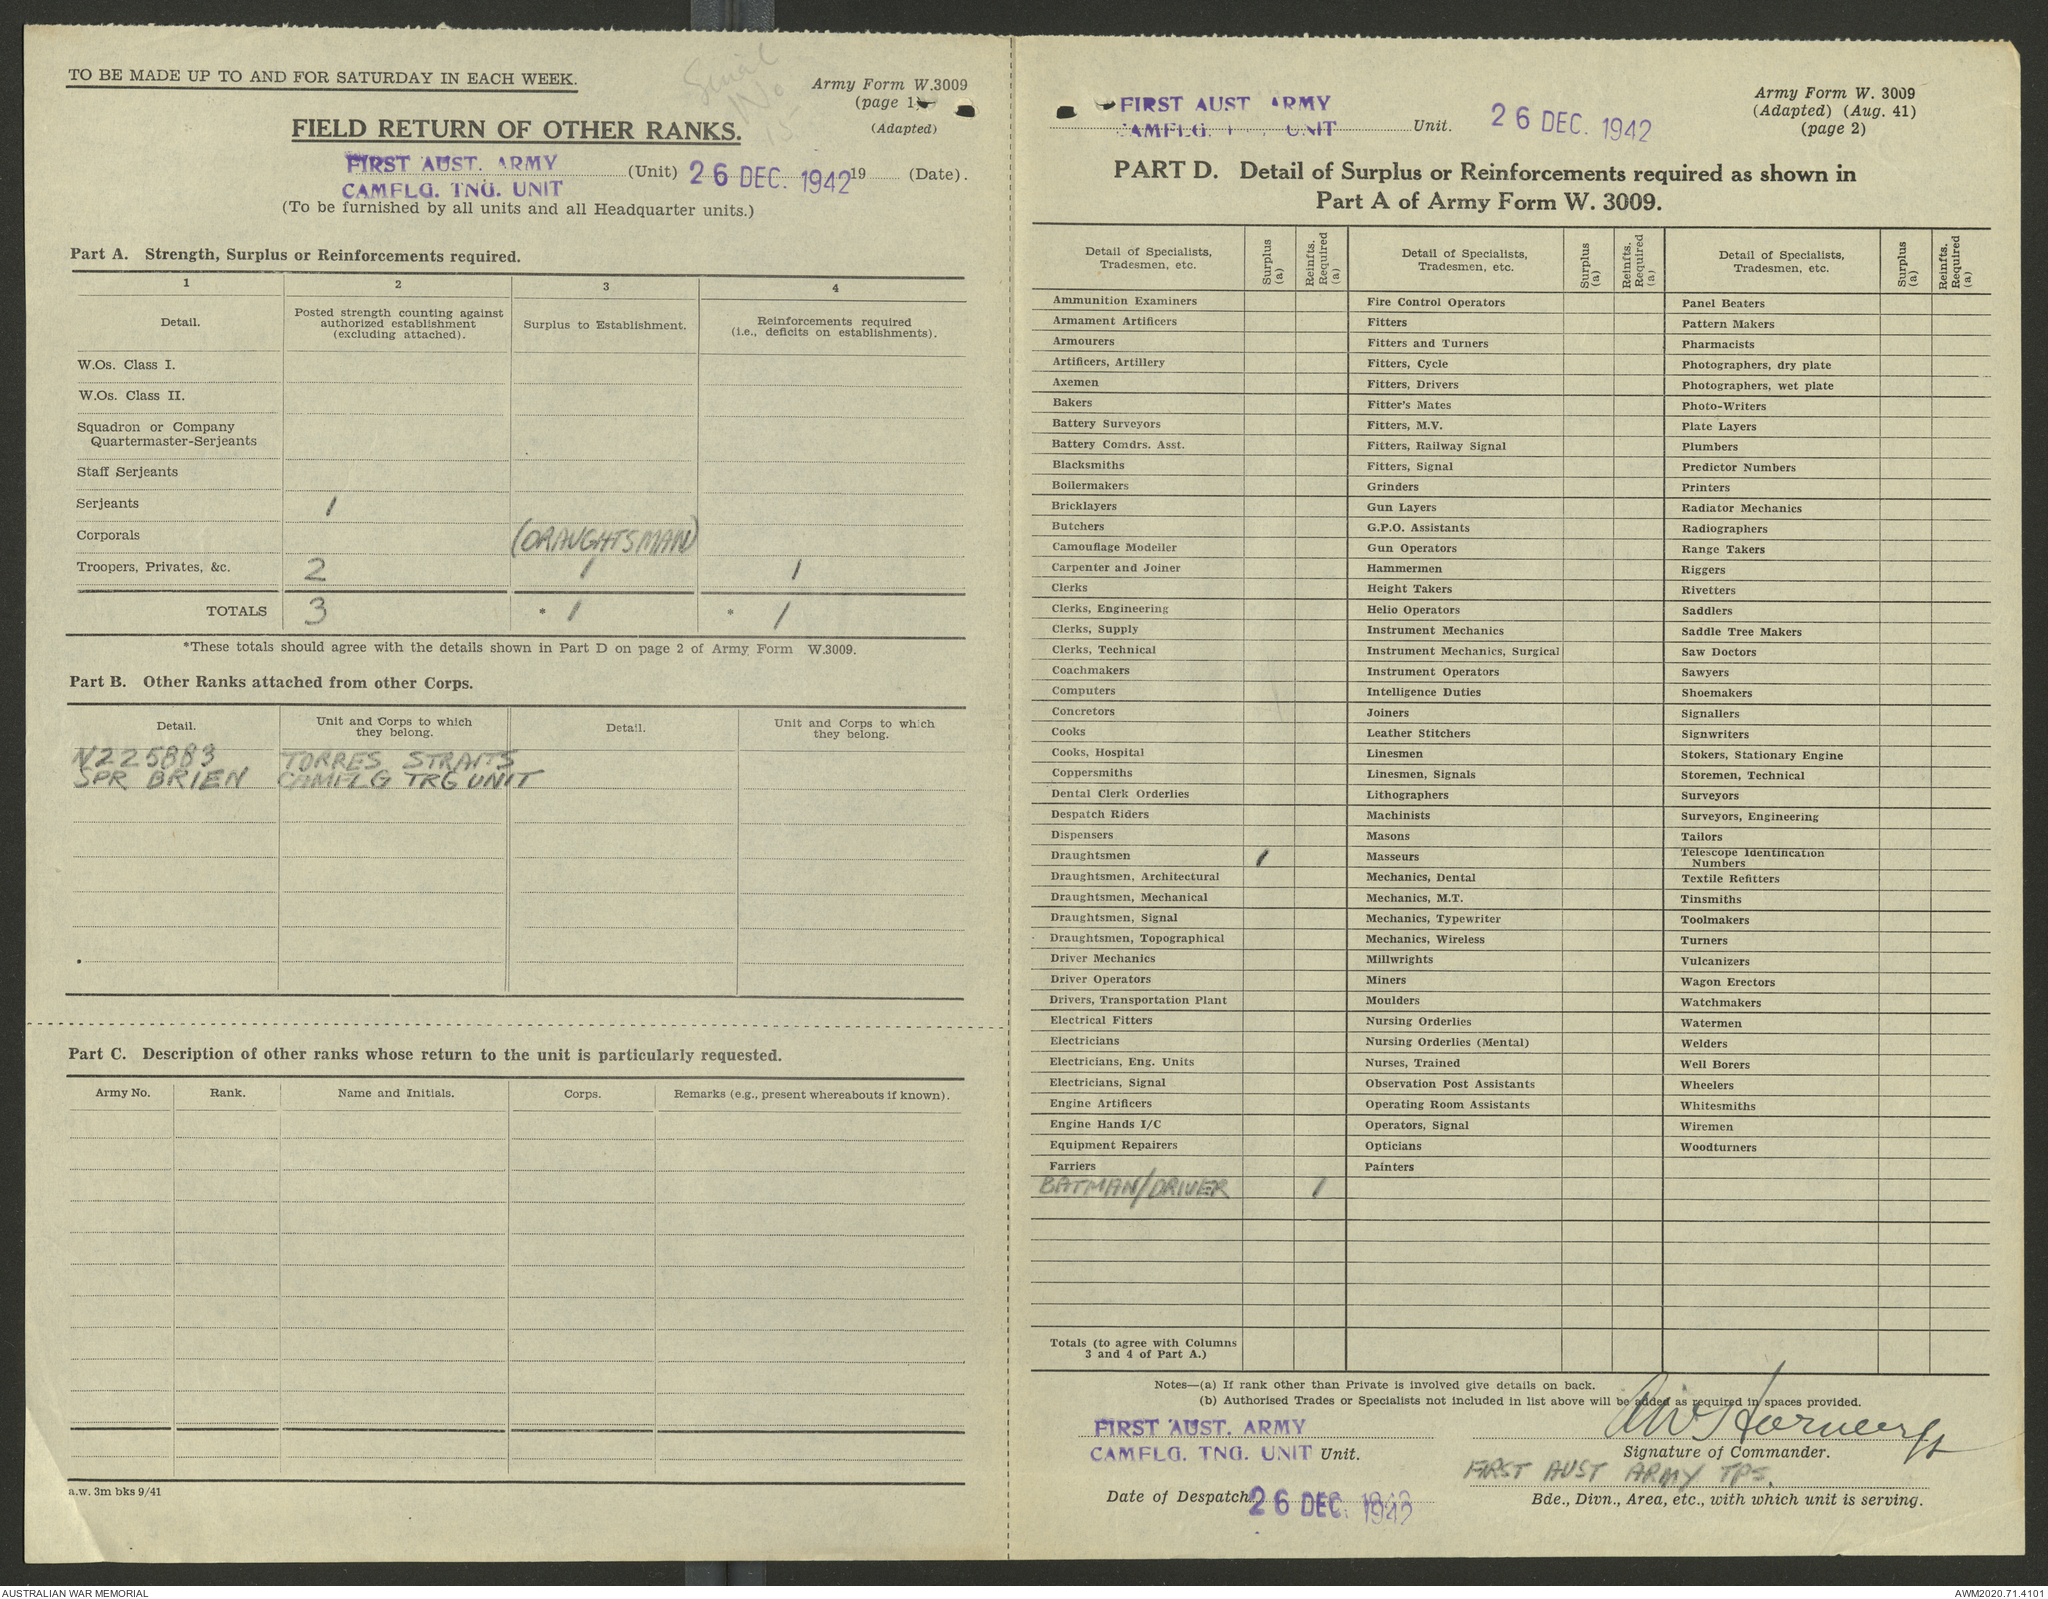 TO BE MADE UP TO AND FOR SATURDAY IN EACH WEEK.
Serial
No
15
Army Form W.3009
(page 1)
(Adapted)
FIELD RETURN OF OTHER RANKS.
FIRST AUST. ARMY
CAMFLG. TNG. UNIT
(Unit) 26 DEC. 1942 19 (Date).
(To be furnished by all units and all Headquarter units.)
Part A. Strength, Surplus or Reinforcements required.
1 2 3 4
Detail.
Posted strength counting against
authorized establishment
(excluding attached).
Surplus to Establishment.
Reinforcements required
(i.e., deficits on establishments).
W.Os. Class I.
W.Os. Class II.
Squadron or Company
Quartermaster-Serjeants
Staff Serjeants
Serjeants 1
Corporals (DRAUGHTSMAN)
Troopers, Privates, &c. 2 1 1
TOTALS 3 * 1 * 1
*These totals should agree with the details shown in Part D on page 2 of Army Form W.3009.
Part B. Other Ranks attached from other Corps.
Detail.
Unit and Corps to which
they belong.
Detail.
Unit and Corps to which
they belong.
N225883 TORRES STRAITS
SPR BRIEN CAMFLG TRG UNIT
Part C. Description of other ranks whose return to the unit is particularly requested.
Army No. Rank. Name and Initials. Corps. Remarks (e.g., present whereabouts if known).
a.w. 3m bks 9/41
FIRST AUST ARMY
CAMFLG. UNIT
Unit. 26 DEC. 1942
Army Form W. 3009
(Adapted) (Aug. 41)
(page 2)
PART D. Detail of Surplus or Reinforcements required as shown in
Part A of Army Form W. 3009.
Detail of Specialists,
Tradesmen, etc.
Surplus
(a)
Reinfts.
Required
(a)
Detail of Specialists,
Tradesmen, etc.
Surplus
(a)
Reinfts.
Required
(a)
Detail of Specialists,
Tradesmen, etc.
Surplus
(a)
Reinfts.
Required
(a)
Ammunition Examiners
Armament Artificers
Armourers
Artificers, Artillery
Axemen
Bakers
Battery Surveyors
Battery Comdrs. Asst.
Blacksmiths
Boilermakers
Bricklayers
Butchers
Camouflage Modeller
Carpenter and Joiner
Clerks
Clerks, Engineering
Clerks, Supply
Clerks, Technical
Coachmakers
Computers
Concretors
Cooks
Cooks, Hospital
Coppersmiths
Dental Clerk Orderlies
Despatch Riders
Dispensers
Draughtsmen 1
Draughtsmen, Architectural
Draughtsmen, Mechanical
Draughtsmen, Signal
Draughtsmen, Topographical
Driver Mechanics
Driver Operators
Drivers, Transportation Plant
Electrical Fitters
Electricians
Electricians, Eng. Units
Electricians, Signal
Engine Artificers
Engine Hands I/C
Equipment Repairers
Farriers
BATMAN/DRIVER 1
Fire Control Operators
Fitters
Fitters and Turners
Fitters, Cycle
Fitters, Drivers
Fitter's Mates
Fitters, M.V.
Fitters, Railway Signal
Fitters, Signal
Grinders
Gun Layers
G.P.O. Assistants
Gun Operators
Hammermen
Height Takers
Helio Operators
Instrument Mechanics
Instrument Mechanics, Surgical
Instrument Operators
Intelligence Duties
Joiners
Leather Stitchers
Linesmen
Linesmen, Signals
Lithographers
Machinists
Masons
Masseurs
Mechanics, Dental
Mechanics, M.T.
Mechanics, Typewriter
Mechanics, Wireless
Millwrights
Miners
Moulders
Nursing Orderlies
Nursing Orderlies (Mental)
Nurses, Trained
Observation Post Assistants
Operating Room Assistants
Operators, Signal
Opticians
Painters
Panel Beaters
Pattern Makers
Pharmacists
Photographers, dry plate
Photographers, wet plate
Photo-Writers
Plate Layers
Plumbers
Predictor Numbers
Printers
Radiator Mechanics
Radiographers
Range Takers
Riggers
Rivetters
Saddlers
Saddle Tree Makers
Saw Doctors
Sawyers
Shoemakers
Signallers
Signwriters
Stokers, Stationary Engine
Storemen, Technical
Surveyors
Surveyors, Engineering
Tailors
Telescope Identification
Numbers
Textile Refitters
Tinsmiths
Toolmakers
Turners
Vulcanizers
Wagon Erectors
Watchmakers
Watermen
Welders
Well Borers
Wheelers
Whitesmiths
Wiremen
Woodturners
Totals (to agree with Columns
3 and 4 of Part A.)
Notes—(a) If rank other than Private is involved give details on back.
(b) Authorised Trades or Specialists not included in list above will be added as required in spaces provided.
FIRST AUST. ARMY
CAMFLG. TNG. UNIT Unit.
Signature of Commander.
FIRST AUST ARMY TPS.
Date of Despatch 26 DEC. 1942
Bde., Divn., Area, etc., with which unit is serving.
AUSTRALIAN WAR MEMORIAL
AWM2020.71.4101